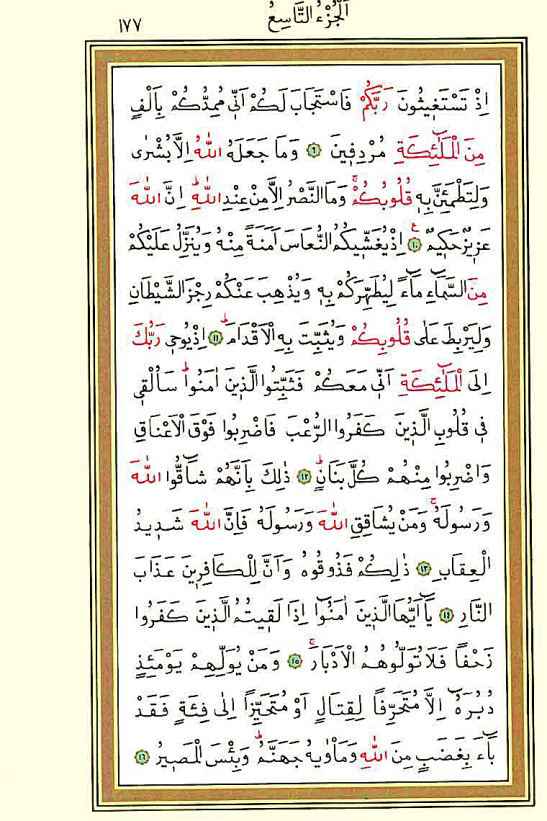 اَلْجُزْءُ التَّاسِعُ
١٧٧
اِذْ تَسْتَغ۪يثُونَ رَبَّكُمْ فَاسْتَجَابَ لَكُمْ اَنّ۪ي مُمِدُّكُمْ بِاَلْفٍ
مِنَ الْمَلٰٓئِكَةِ مُرْدِف۪ينَ ﴿٩﴾ وَمَا جَعَلَهُ اللّٰهُ اِلَّا بُشْرٰى
وَلِتَطْمَئِنَّ بِه۪ قُلُوبُكُمْۚ وَمَا النَّصْرُ اِلَّا مِنْ عِنْدِ اللّٰهِۜ اِنَّ اللّٰهَ
عَز۪يزٌ حَك۪يمٌ۟ ﴿١٠﴾ اِذْ يُغَشّ۪يكُمُ النُّعَاسَ اَمَنَةً مِنْهُ وَيُنَزِّلُ عَلَيْكُمْ
مِنَ السَّمَٓاءِ مَٓاءً لِيُطَهِّرَكُمْ بِه۪ وَيُذْهِبَ عَنْكُمْ رِجْزَ الشَّيْطَانِ
وَلِيَرْبِطَ عَلٰى قُلُوبِكُمْ وَيُثَبِّتَ بِهِ الْاَقْدَامَۜ ﴿١١﴾ اِذْ يُوح۪ي رَبُّكَ
اِلَى الْمَلٰٓئِكَةِ اَنّ۪ي مَعَكُمْ فَثَبِّتُوا الَّذ۪ينَ اٰمَنُواۜ سَاُلْق۪ي
ف۪ي قُلُوبِ الَّذ۪ينَ كَفَرُوا الرُّعْبَ فَاضْرِبُوا فَوْقَ الْاَعْنَاقِ
وَاضْرِبُوا مِنْهُمْ كُلَّ بَنَانٍۜ ﴿١٢﴾ ذٰلِكَ بِاَنَّهُمْ شَٓاقُّوا اللّٰهَ
وَرَسُولَهُۚ وَمَنْ يُشَاقِقِ اللّٰهَ وَرَسُولَهُ فَاِنَّ اللّٰهَ شَد۪يدُ
الْعِقَابِ ﴿١٣﴾ ذٰلِكُمْ فَذُوقُوهُ وَاَنَّ لِلْكَافِر۪ينَ عَذَابَ
النَّارِ ﴿١٤﴾ يَٓا اَيُّهَا الَّذ۪ينَ اٰمَنُٓوا اِذَا لَق۪يتُمُ الَّذ۪ينَ كَفَرُوا
زَحْفًا فَلَا تُوَلُّوهُمُ الْاَدْبَارَۚ ﴿١٥﴾ وَمَنْ يُوَلِّهِمْ يَوْمَئِذٍ
دُبُرَهُٓ اِلَّا مُتَحَرِّفًا لِقِتَالٍ اَوْ مُتَحَيِّزًا اِلٰى فِئَةٍ فَقَدْ
بَٓاءَ بِغَضَبٍ مِنَ اللّٰهِ وَمَأْوٰيهُ جَهَنَّمُۜ وَبِئْسَ الْمَص۪يرُ ﴿١٦﴾